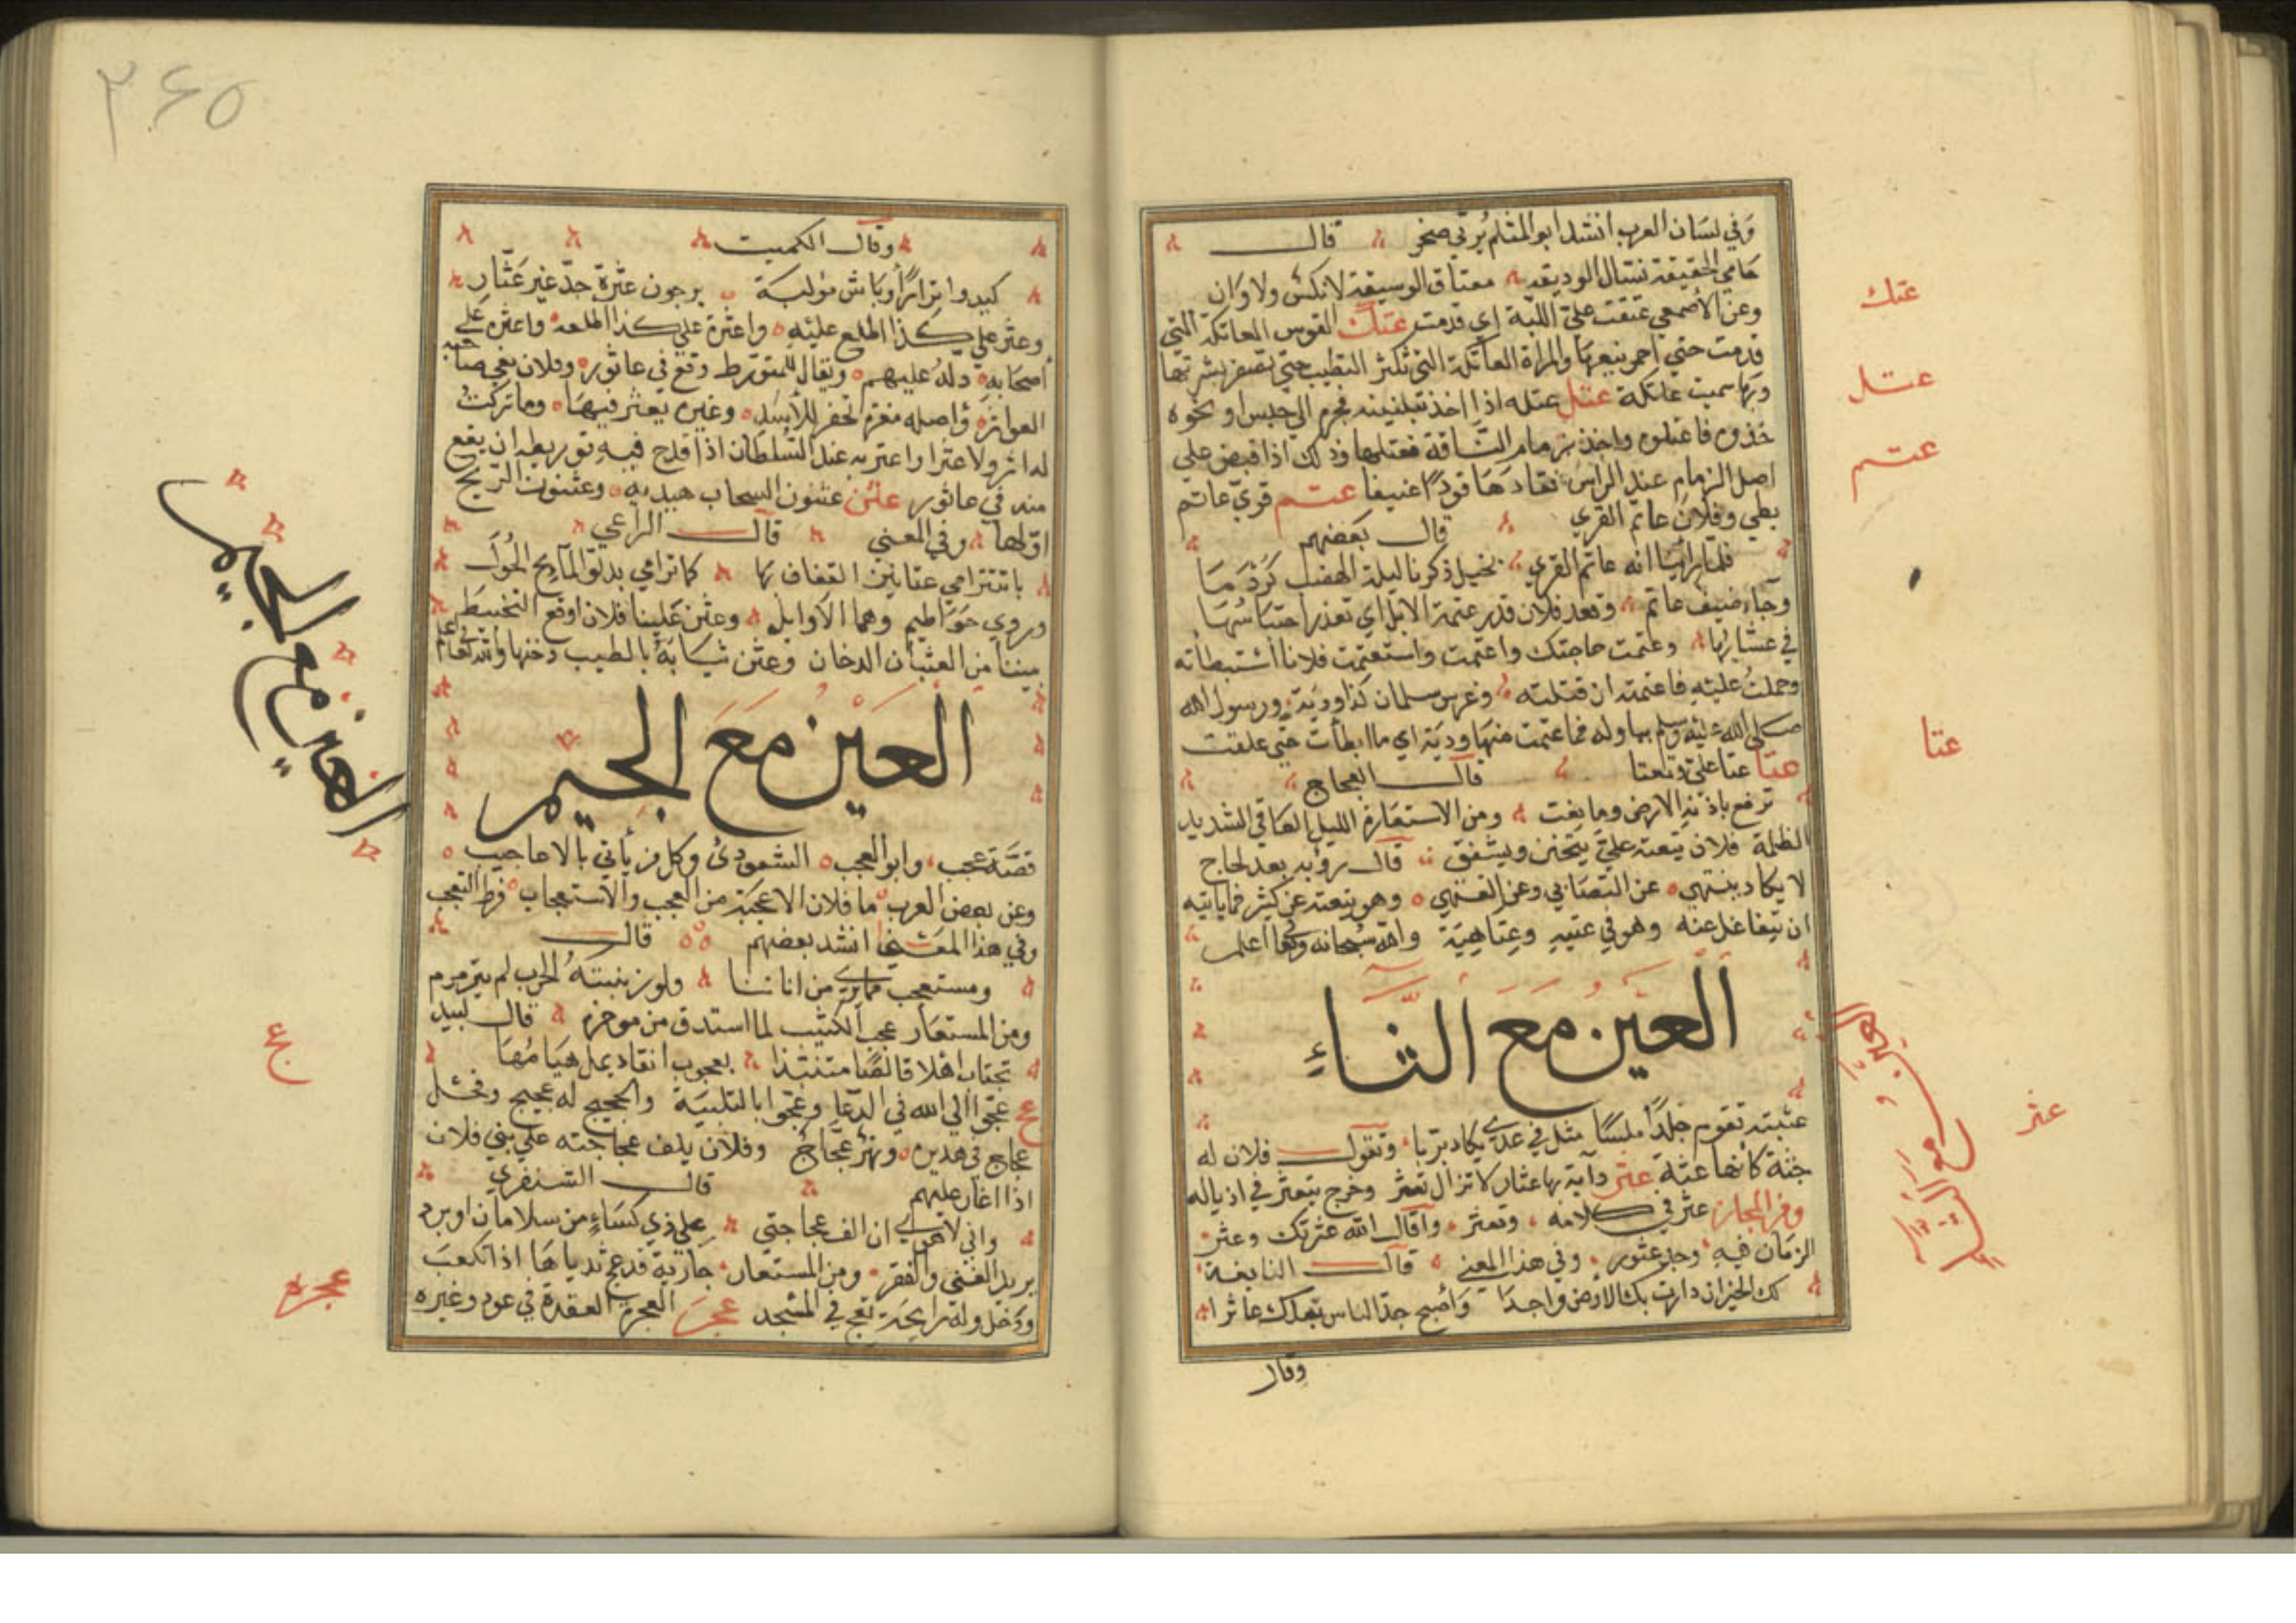 وفي لسان العرب انشد ابو المثلم يرثي صخر قال
حامي الحقيقة نسال الوديقه معتاق الوسيقة لا نكس ولا وان
وعن الاصمعي عتقت علي اللية اي قدمت عتك القوس العاتكة التي
قدمت حتي احمر نبعها والمراة العاتكة التي تكثر الطيب حتي تصفر بشرتها
وبها سميت عاتكة عتل عتله اذا اخذ بتلبيبه فجره الي حبس او نحوه
خذوه فاعتلوه واخذ بزمام الناقة فعتلها وذلك اذا قبض علي
اصل الزمام عند الراس فقادها قودا عنيفا عتم قري عاتم
بطي وفلان عاتم القري قال بعضهم
فلما راينا انه عاتم القري بخيل ذكرنا ليلة الهضب كردما
وجاء ضيف عاتم وقعد فلان قدر عتمة الابل اي تعذر احتباسها
في عشايها وعتمت حاجتك واعتمت واستعتمت فلانا استبطاته
وحملت عليه فما عتم ان قتلته وغرس سلمان كذا ودية ورسول الله
صلي الله عليه وسلم يناوله فما عتمت منها ودية اي ما ابطأت حتي علقت
عتا عتا علي وتعتا قال العجاج
ترفع باذنه الارض وما بغت ومن الاستعارة الليل العاتي الشديد
الظلمة فلان يتعته علي يتجنن ويشفق قال رؤبه بعد لجاج
لا يكاد ينتهي عن التصابي وعن التعتهي وهو يتعته عن كثير مما ياتيه
ان يتغافل عنه وهو في عتيه وعتاهية والله سبحانه وتعالي اعلم
العين مع الثاء
عثيثة تقرم جلدا ملسا مثل في وتقول فلان له
جثة كانها عثة عثر دابة بها عثار لا تزال تعثر وخرج يتعثر في اذياله
ومن المجاز عثر في كلامه وتعثر واقال الله عثرتك وعثر
الزمان فيه وجد عثور وفي هذا المعني قال النابغة
لك الخير ان وارت بك الارض واحدا واصبح جد الناس بعدك عاثرا
وقال
عتك
عتل
عتم
عتا
العين مع الثاء
عثر
٣٦٥
وقال الكميت
كيدوا نزارا وباش مؤلبة يرجون عثرة جد غير عثار
وعثر علي كذا اطلع عليه واعثره علي كذا اطلعه واعثره علي
اصحابه دله عليهم ويقال للمتورط وقع في عاثور وفلان يبغي صاحبه
العواثر واصله حفر للاسد وغيره يعثر فيها وما تركت
له اثرا ولا عثرا واعثر به عند السلطان اذا قدح فيه توريطه ان يقع
منه في عاثور عثن عثنون السحاب هيدبه وعثنون الريح
اولها وفي المعني قال الراعي
باتت ترامي عثانين القفاف بها كما ترامي بدلو الماتح الجول
وروي حواطيم وهما الاوايل وعثن علينا فلان اوقع التخبيط
بيننا من العثان الدخان وعثن ثيابه بالطيب دخنها والله تعالي اعلم
العين مع الجيم
قصة عجب وابو العجب الشعوذي وكل من يأتي بالاعاجيب
وعن بعض العرب ما فلان الا عجبة من العجب والاستعجاب فرط التعجب
وفي هذا المعني انشد بعضهم قال
ومستعجب مما يري من اناتنا ولو زبنته الحرب لم يترمرم
ومن المستعار عجب الكثيب لما استدق من موخره قال لبيد
تجتاب اصلا قالصا متنبذا بعجوب انقاء يميل هيامها
عج عجوا الي الله في الدعا وعجوا بالتلبية والحجيج له عجيج وفحل
عجاج في هديره ونهر عجاج وفلان يلف عجاجته علي بني فلان
اذا اغار عليهم قال الشنفري
واني لاهوي ان الف عجاجتي علي ذي كساء من سلامان او برد
يريد الغني والفقر ومن المستعار جارية قد عج ثدياها اذا تكعب
ودخل وله رايحة تعج في المسجد عجر العجرة العقدة في عود وغيره
العين مع الجيم
عج
عجره